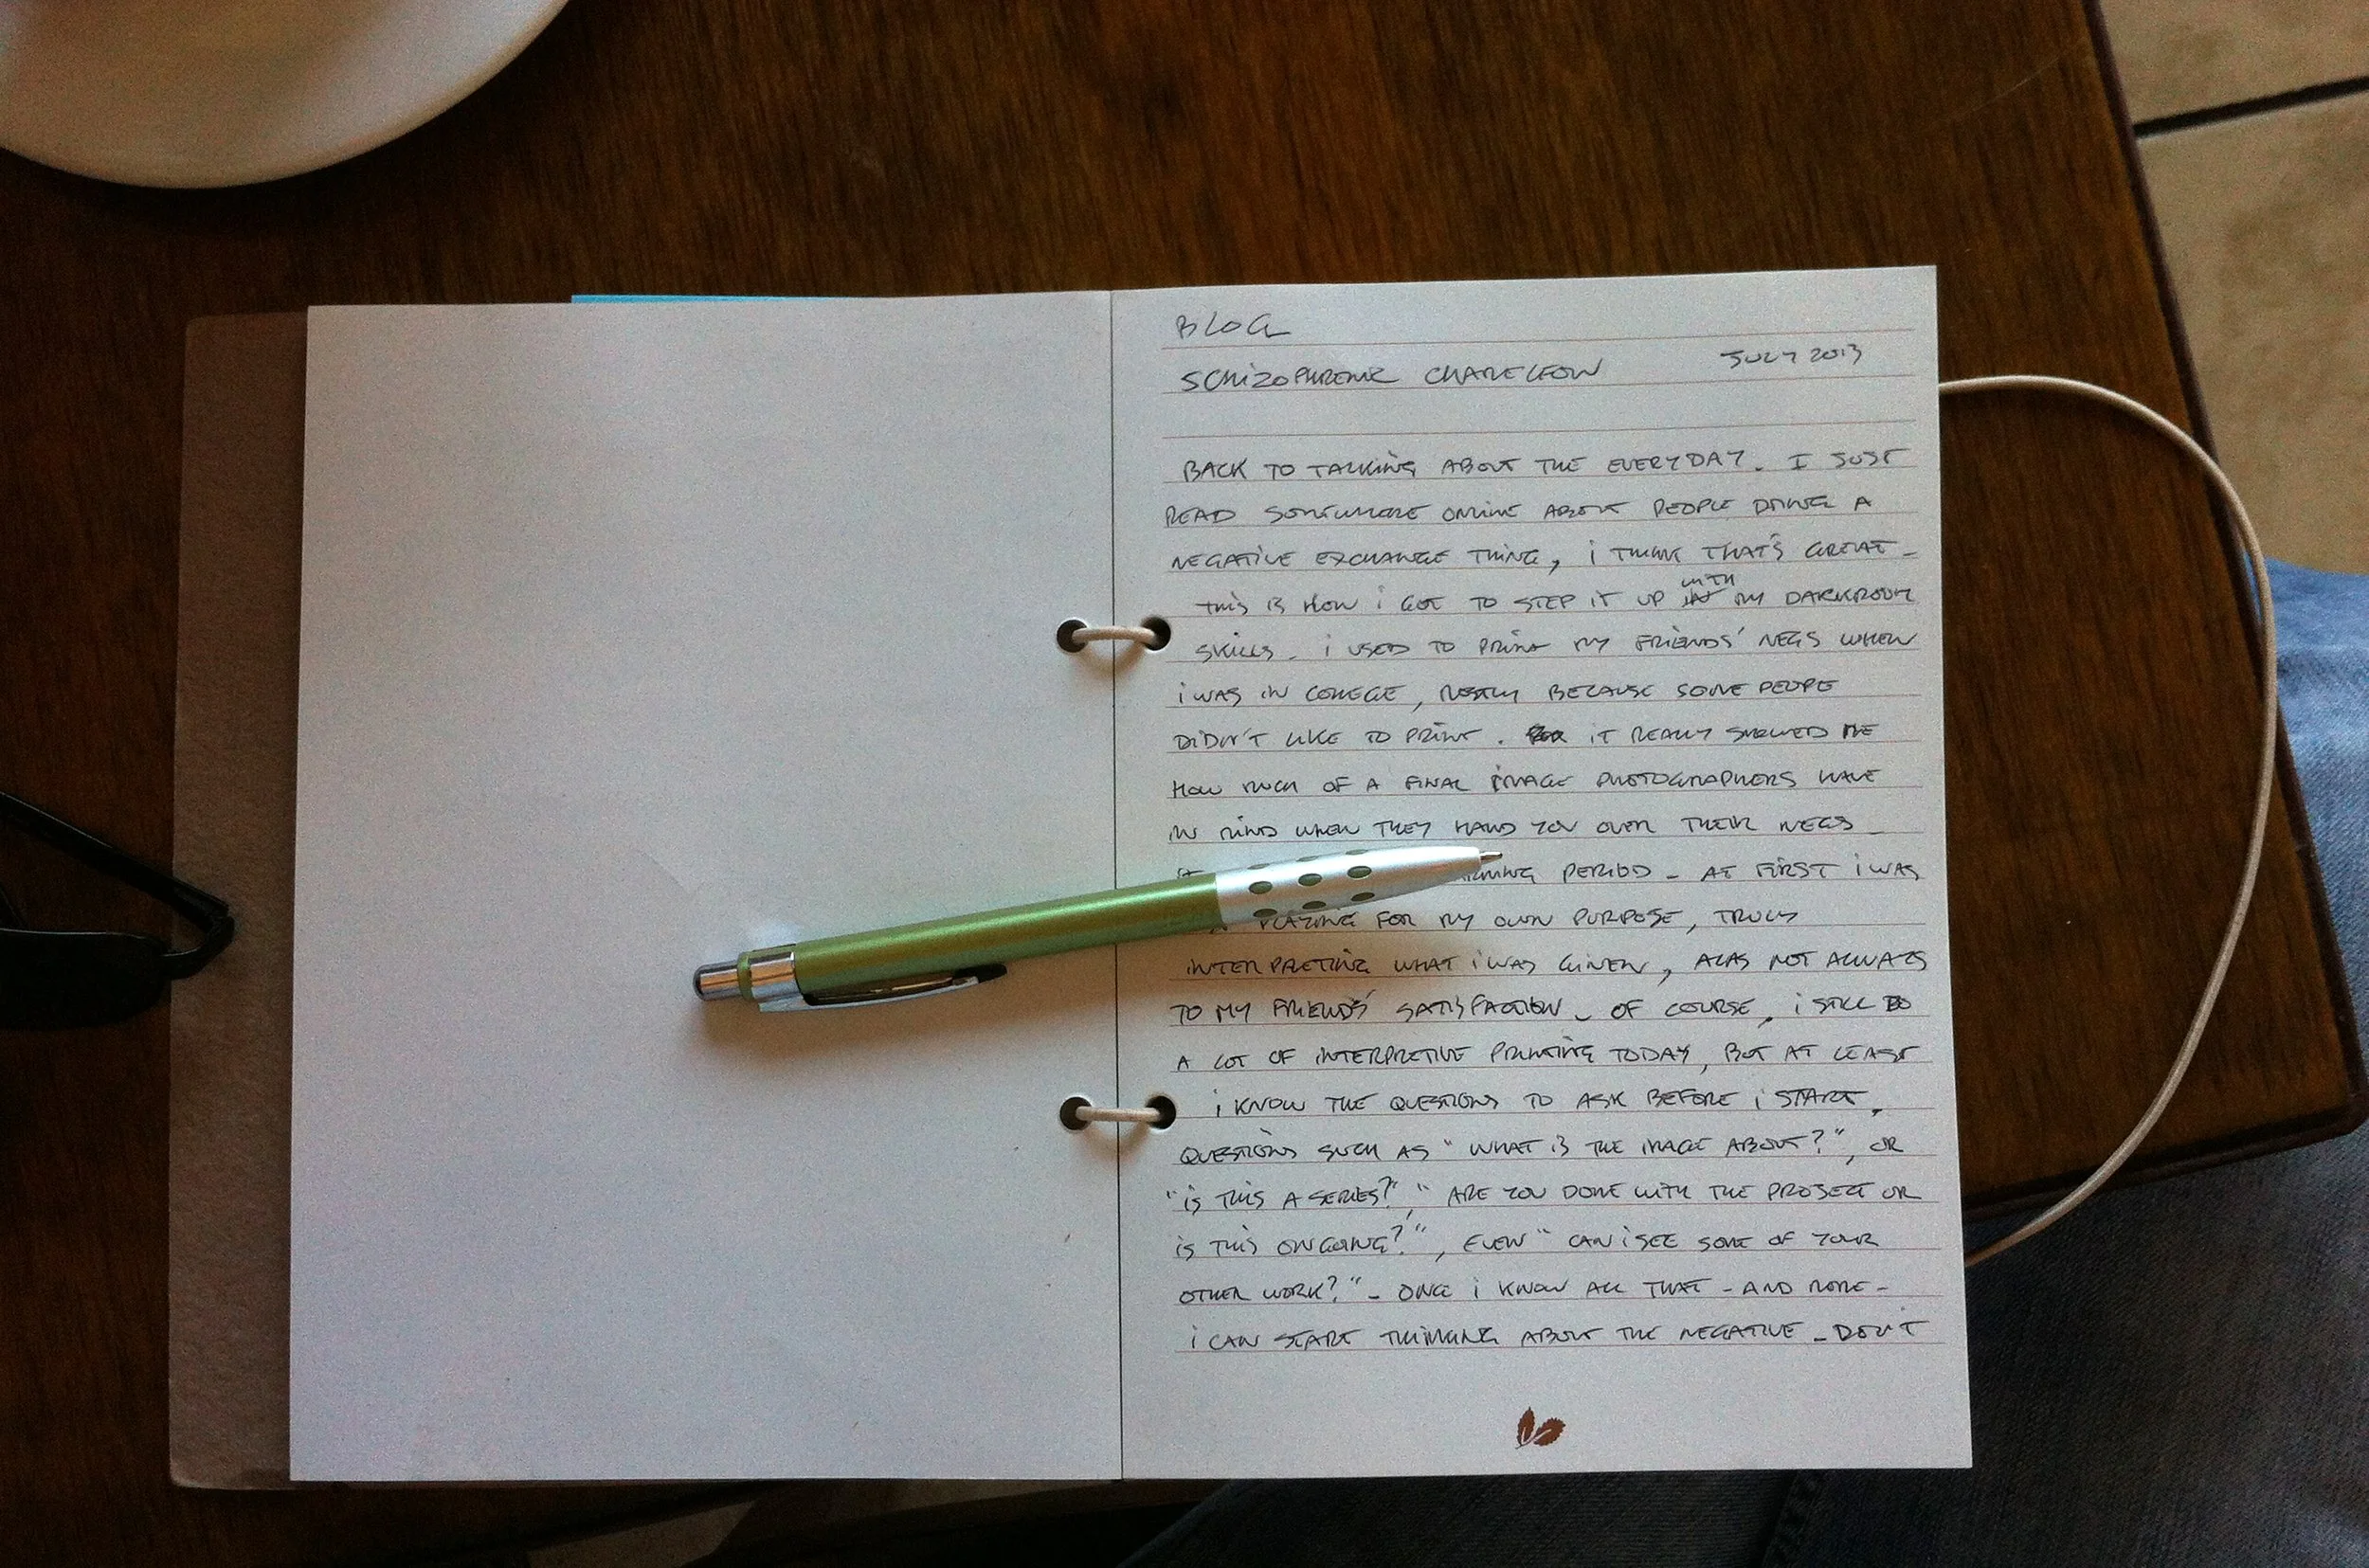 BLOG
SCHIZOPHRENIC CHAMELEON JULY 2013
BACK TO TALKING ABOUT THE EVERYDAY. I JUST
READ SOMEWHERE ONLINE ABOUT PEOPLE DOING A
NEGATIVE EXCHANGE THING, i THINK THAT'S GREAT_
THIS IS HOW i GOT TO STEP IT UP WITH MY DARKROOM
SKILLS. i USED TO PRINT MY FRIENDS' NEGS WHEN
i WAS IN COLLEGE, MOSTLY BECAUSE SOME PEOPLE
DIDN'T LIKE TO PRINT. IT REALLY SHOWED ME
HOW MUCH OF A FINAL IMAGE PHOTOGRAPHERS HAVE
IN MIND WHEN THEY HAND YOU OVER THEIR NEGS_
PERIOD - AT FIRST i WAS
PLAYING FOR MY OWN PURPOSE, TRULY
INTERPRETING WHAT i WAS GIVEN, ALAS NOT ALWAYS
TO MY FRIENDS' SATISFACTION_ OF COURSE, i STILL DO
A LOT OF INTERPRETIVE PRINTING TODAY, BUT AT LEAST
i KNOW THE QUESTIONS TO ASK BEFORE i START,
QUESTIONS SUCH AS "WHAT IS THE IMAGE ABOUT?", OR
"IS THIS A SERIES?", "ARE YOU DONE WITH THE PROJECT OR
IS THIS ONGOING?", EVEN "CAN i SEE SOME OF YOUR
OTHER WORK?"_ ONCE i KNOW ALL THAT - AND MORE -
i CAN START THINKING ABOUT THE NEGATIVE_ DON'T